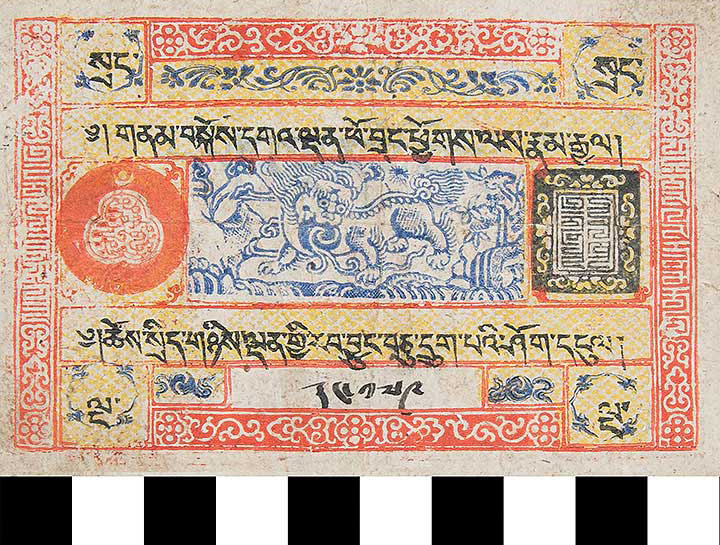 སྲང་ སྲང་
༄། གནམ་བསྐོས་དགའ་ལྡན་ཕོ་བྲང་ཕྱོགས་ལས་རྣམ་རྒྱལ།
༄། ཆོས་སྲིད་གཉིས་ལྡན་གྱི་རབ་བྱུང་བཅུ་དྲུག་པའི་ཤོག་དངུལ།
ལྔ་ ལྔ་